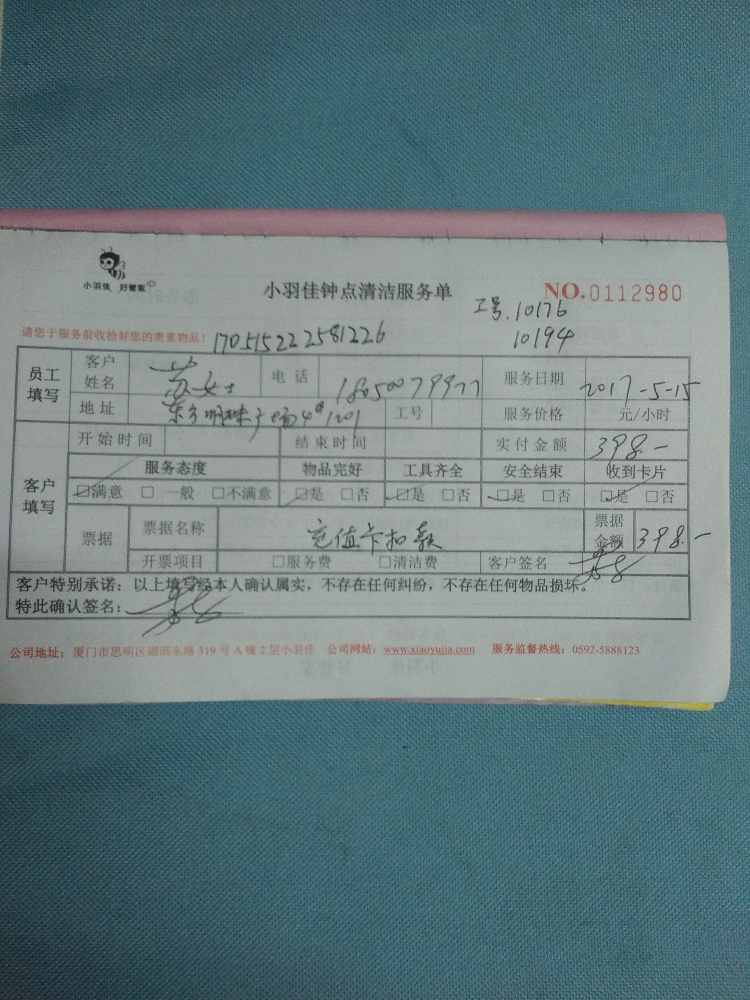 小羽佳 好管家
小羽佳钟点清洁服务单
NO.0112980
工号.10176
10194
请您于服务前收拾好您的贵重物品!
170515222581226
员工填写 客户姓名 苏女士 电话 18050079977 服务日期 2017-5-15
地址 东方明珠广场4#1201 工号 服务价格 元/小时
客户填写 开始时间 结束时间 实付金额 398.-
服务态度 物品完好 工具齐全 安全结束 收到卡片
☑满意 □一般 □不满意 ☑是 □否 ☑是 □否 ☑是 □否 ☑是 □否
票据 票据名称 充值卡扣款 票据金额 398.-
开票项目 □服务费 □清洁费 客户签名
客户特别承诺：以上填写经本人确认属实，不存在任何纠纷，不存在任何物品损坏。
特此确认签名：
公司地址：厦门市思明区湖滨东路319号A幢2层小羽佳 公司网站：www.xiaoyujia.com 服务监督热线：0592-5888123